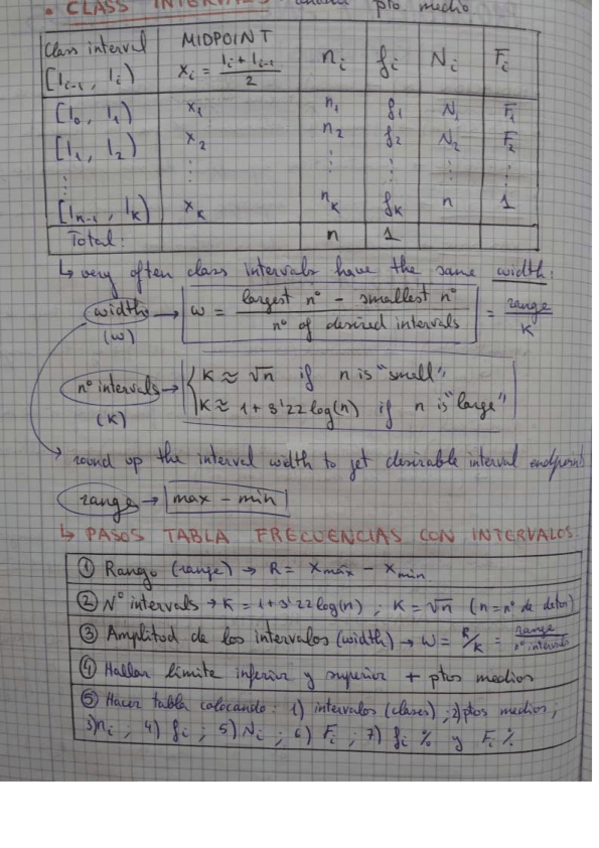 • CLASS INTERVALS pto medio
Class interval MIDPOINT nᵢ fᵢ Nᵢ Fᵢ
[lᵢ₋₁, lᵢ) xᵢ = (lᵢ + lᵢ₋₁)/2
[l₀, l₁) x₁ n₁ f₁ N₁ F₁
[l₁, l₂) x₂ n₂ f₂ N₂ F₂
⋮ ⋮ ⋮ ⋮ ⋮ ⋮
[lₙ₋₁, lₖ) xₖ nₖ fₖ n 1
Total: n 1
↳ very often class intervals have the same width:
width → w = (largest nº - smallest nº)/(nº of desired intervals) = range/K
(w)
nº intervals → { K ≈ √n if n is "small"
(K) K ≈ 1 + 3'22 log(n) if n is "large"
→ round up the interval width to get desirable interval endpoints
range → max - min
↳ PASOS TABLA FRECUENCIAS CON INTERVALOS:
① Rango (range) → R = xmáx - xmin
② Nº intervals → K = 1 + 3'22 log(n) ; K = √n (n = nº de datos)
③ Amplitud de los intervalos (width) → w = R/K = range/nº intervals
④ Hallar límite inferior y superior + ptos medios
⑤ Hacer tabla colocando: 1) intervalos (clases) ; 2) ptos medios ;
3) nᵢ ; 4) fᵢ ; 5) Nᵢ ; 6) Fᵢ ; 7) fᵢ % y Fᵢ %